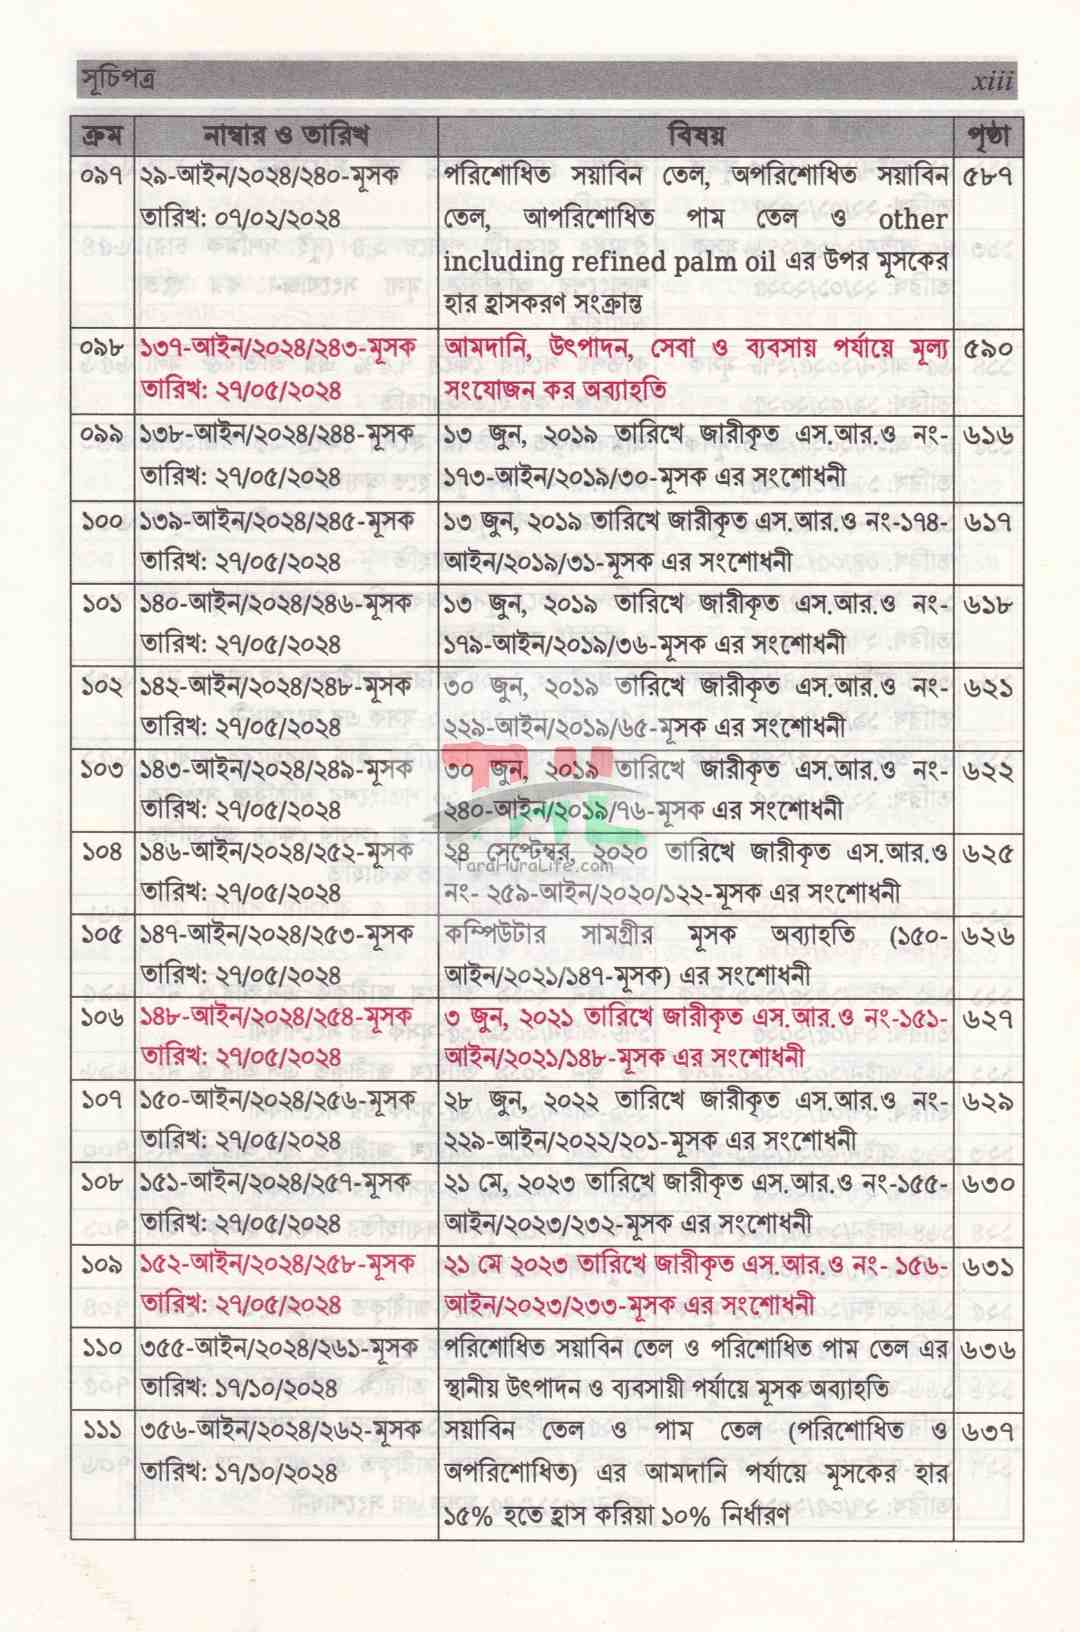 সূচিপত্র xiii
ক্রম নাম্বার ও তারিখ বিষয় পৃষ্ঠা
০৯৭ ২৯-আইন/২০২৪/২৪০-মূসক পরিশোধিত সয়াবিন তেল, অপরিশোধিত সয়াবিন ৫৮৭
তারিখ: ০৭/০২/২০২৪ তেল, আপরিশোধিত পাম তেল ও other
including refined palm oil এর উপর মূসকের
হার হ্রাসকরণ সংক্রান্ত
০৯৮ ১৩৭-আইন/২০২৪/২৪৩-মূসক আমদানি, উৎপাদন, সেবা ও ব্যবসায় পর্যায়ে মূল্য ৫৯০
তারিখ: ২৭/০৫/২০২৪ সংযোজন কর অব্যাহতি
০৯৯ ১৩৮-আইন/২০২৪/২৪৪-মূসক ১৩ জুন, ২০১৯ তারিখে জারীকৃত এস.আর.ও নং- ৬১৬
তারিখ: ২৭/০৫/২০২৪ ১৭৩-আইন/২০১৯/৩০-মূসক এর সংশোধনী
১০০ ১৩৯-আইন/২০২৪/২৪৫-মূসক ১৩ জুন, ২০১৯ তারিখে জারীকৃত এস.আর.ও নং-১৭৪- ৬১৭
তারিখ: ২৭/০৫/২০২৪ আইন/২০১৯/৩১-মূসক এর সংশোধনী
১০১ ১৪০-আইন/২০২৪/২৪৬-মূসক ১৩ জুন, ২০১৯ তারিখে জারীকৃত এস.আর.ও নং- ৬১৮
তারিখ: ২৭/০৫/২০২৪ ১৭৯-আইন/২০১৯/৩৬-মূসক এর সংশোধনী
১০২ ১৪২-আইন/২০২৪/২৪৮-মূসক ৩০ জুন, ২০১৯ তারিখে জারীকৃত এস.আর.ও নং- ৬২১
তারিখ: ২৭/০৫/২০২৪ ২২৯-আইন/২০১৯/৬৫-মূসক এর সংশোধনী
১০৩ ১৪৩-আইন/২০২৪/২৪৯-মূসক ৩০ জুন, ২০১৯ তারিখে জারীকৃত এস.আর.ও নং- ৬২২
তারিখ: ২৭/০৫/২০২৪ ২৪০-আইন/২০১৯/৭৬-মূসক এর সংশোধনী
১০৪ ১৪৬-আইন/২০২৪/২৫২-মূসক ২৪ সেপ্টেম্বর, ২০২০ তারিখে জারীকৃত এস.আর.ও ৬২৫
TaraHuraLife.com
তারিখ: ২৭/০৫/২০২৪ নং- ২৫৯-আইন/২০২০/১২২-মূসক এর সংশোধনী
১০৫ ১৪৭-আইন/২০২৪/২৫৩-মূসক কম্পিউটার সামগ্রীর মূসক অব্যাহতি (১৫০- ৬২৬
তারিখ: ২৭/০৫/২০২৪ আইন/২০২১/১৪৭-মূসক) এর সংশোধনী
১০৬ ১৪৮-আইন/২০২৪/২৫৪-মূসক ৩ জুন, ২০২১ তারিখে জারীকৃত এস.আর.ও নং-১৫১- ৬২৭
তারিখ: ২৭/০৫/২০২৪ আইন/২০২১/১৪৮-মূসক এর সংশোধনী
১০৭ ১৫০-আইন/২০২৪/২৫৬-মূসক ২৮ জুন, ২০২২ তারিখে জারীকৃত এস.আর.ও নং- ৬২৯
তারিখ: ২৭/০৫/২০২৪ ২২৯-আইন/২০২২/২০১-মূসক এর সংশোধনী
১০৮ ১৫১-আইন/২০২৪/২৫৭-মূসক ২১ মে, ২০২৩ তারিখে জারীকৃত এস.আর.ও নং-১৫৫- ৬৩০
তারিখ: ২৭/০৫/২০২৪ আইন/২০২৩/২৩২-মূসক এর সংশোধনী
১০৯ ১৫২-আইন/২০২৪/২৫৮-মূসক ২১ মে ২০২৩ তারিখে জারীকৃত এস.আর.ও নং- ১৫৬- ৬৩১
তারিখ: ২৭/০৫/২০২৪ আইন/২০২৩/২৩৩-মূসক এর সংশোধনী
১১০ ৩৫৫-আইন/২০২৪/২৬১-মূসক পরিশোধিত সয়াবিন তেল ও পরিশোধিত পাম তেল এর ৬৩৬
তারিখ: ১৭/১০/২০২৪ স্থানীয় উৎপাদন ও ব্যবসায়ী পর্যায়ে মূসক অব্যাহতি
১১১ ৩৫৬-আইন/২০২৪/২৬২-মূসক সয়াবিন তেল ও পাম তেল (পরিশোধিত ও ৬৩৭
তারিখ: ১৭/১০/২০২৪ অপরিশোধিত) এর আমদানি পর্যায়ে মূসকের হার
১৫% হতে হ্রাস করিয়া ১০% নির্ধারণ